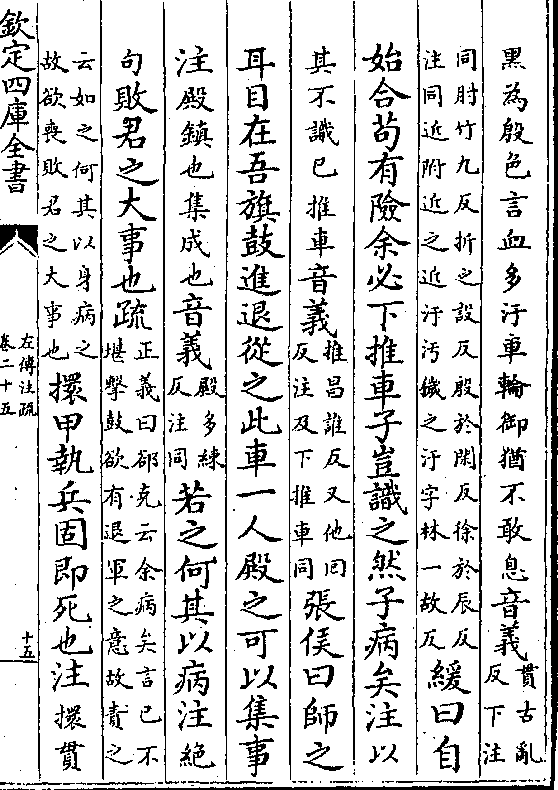 黑為殷色言血多汙車輪御猶不敢息音義貫古亂
反下注
同肘竹九反折之設反殷於閑反徐於辰反
注同近附近之近汙汚穢之汙字林一故反
緩曰自
始合苟有險余必下推車子豈識之然子病矣注以
其不識已推車音義推昌誰反又他回
反注及下推車同
張侯曰師之
耳目在吾旗鼓進退從之此車一人殿之可以集事
注殿鎮也集成也音義殿多練
反注同
若之何其以病注絶
句敗君之大事也疏正義曰郤克云余病矣言已不
堪擊鼓欲有退軍之意故責之
云如之何其以身病之
故欲喪敗君之大事也
擐甲執兵固即死也注擐貫
欽定四庫全書
左傳注疏
卷二十五
十五